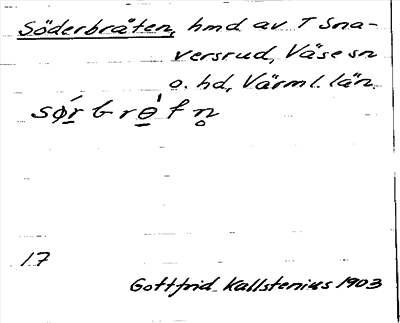 Söderbråten, hmd av T Sna-
versrud, Väse sn
o. hd, Värml. län.
sø̀rbrɵ̀tn̥
17
Gottfrid Kallstenius 1903